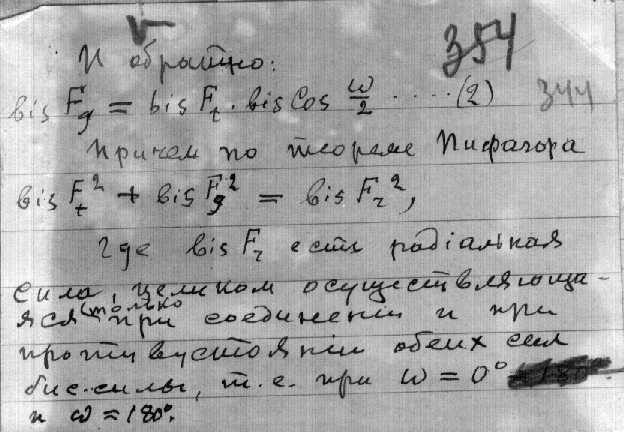 354
И обратно:
bis Fg = bis Ft . bis Cos ω/2 ..... (2) 344
Причем по теореме Пифагора
bis Ft² + bis Fg² = bis Fr²,
где bis Fr есть радіальная
сила, целиком осуществляюща-
яся только при соединеніи и при
противустояніи обеих сил
бис.силы, т.е. при ω = 0°
и ω = 180°.